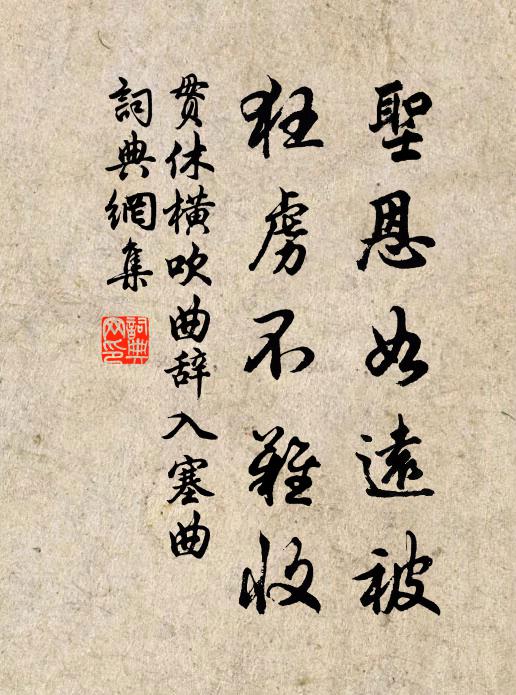 聖恩如遠被
狂虜不難收
貫休橫吹曲辞入塞曲
詞典網集
詞典網印